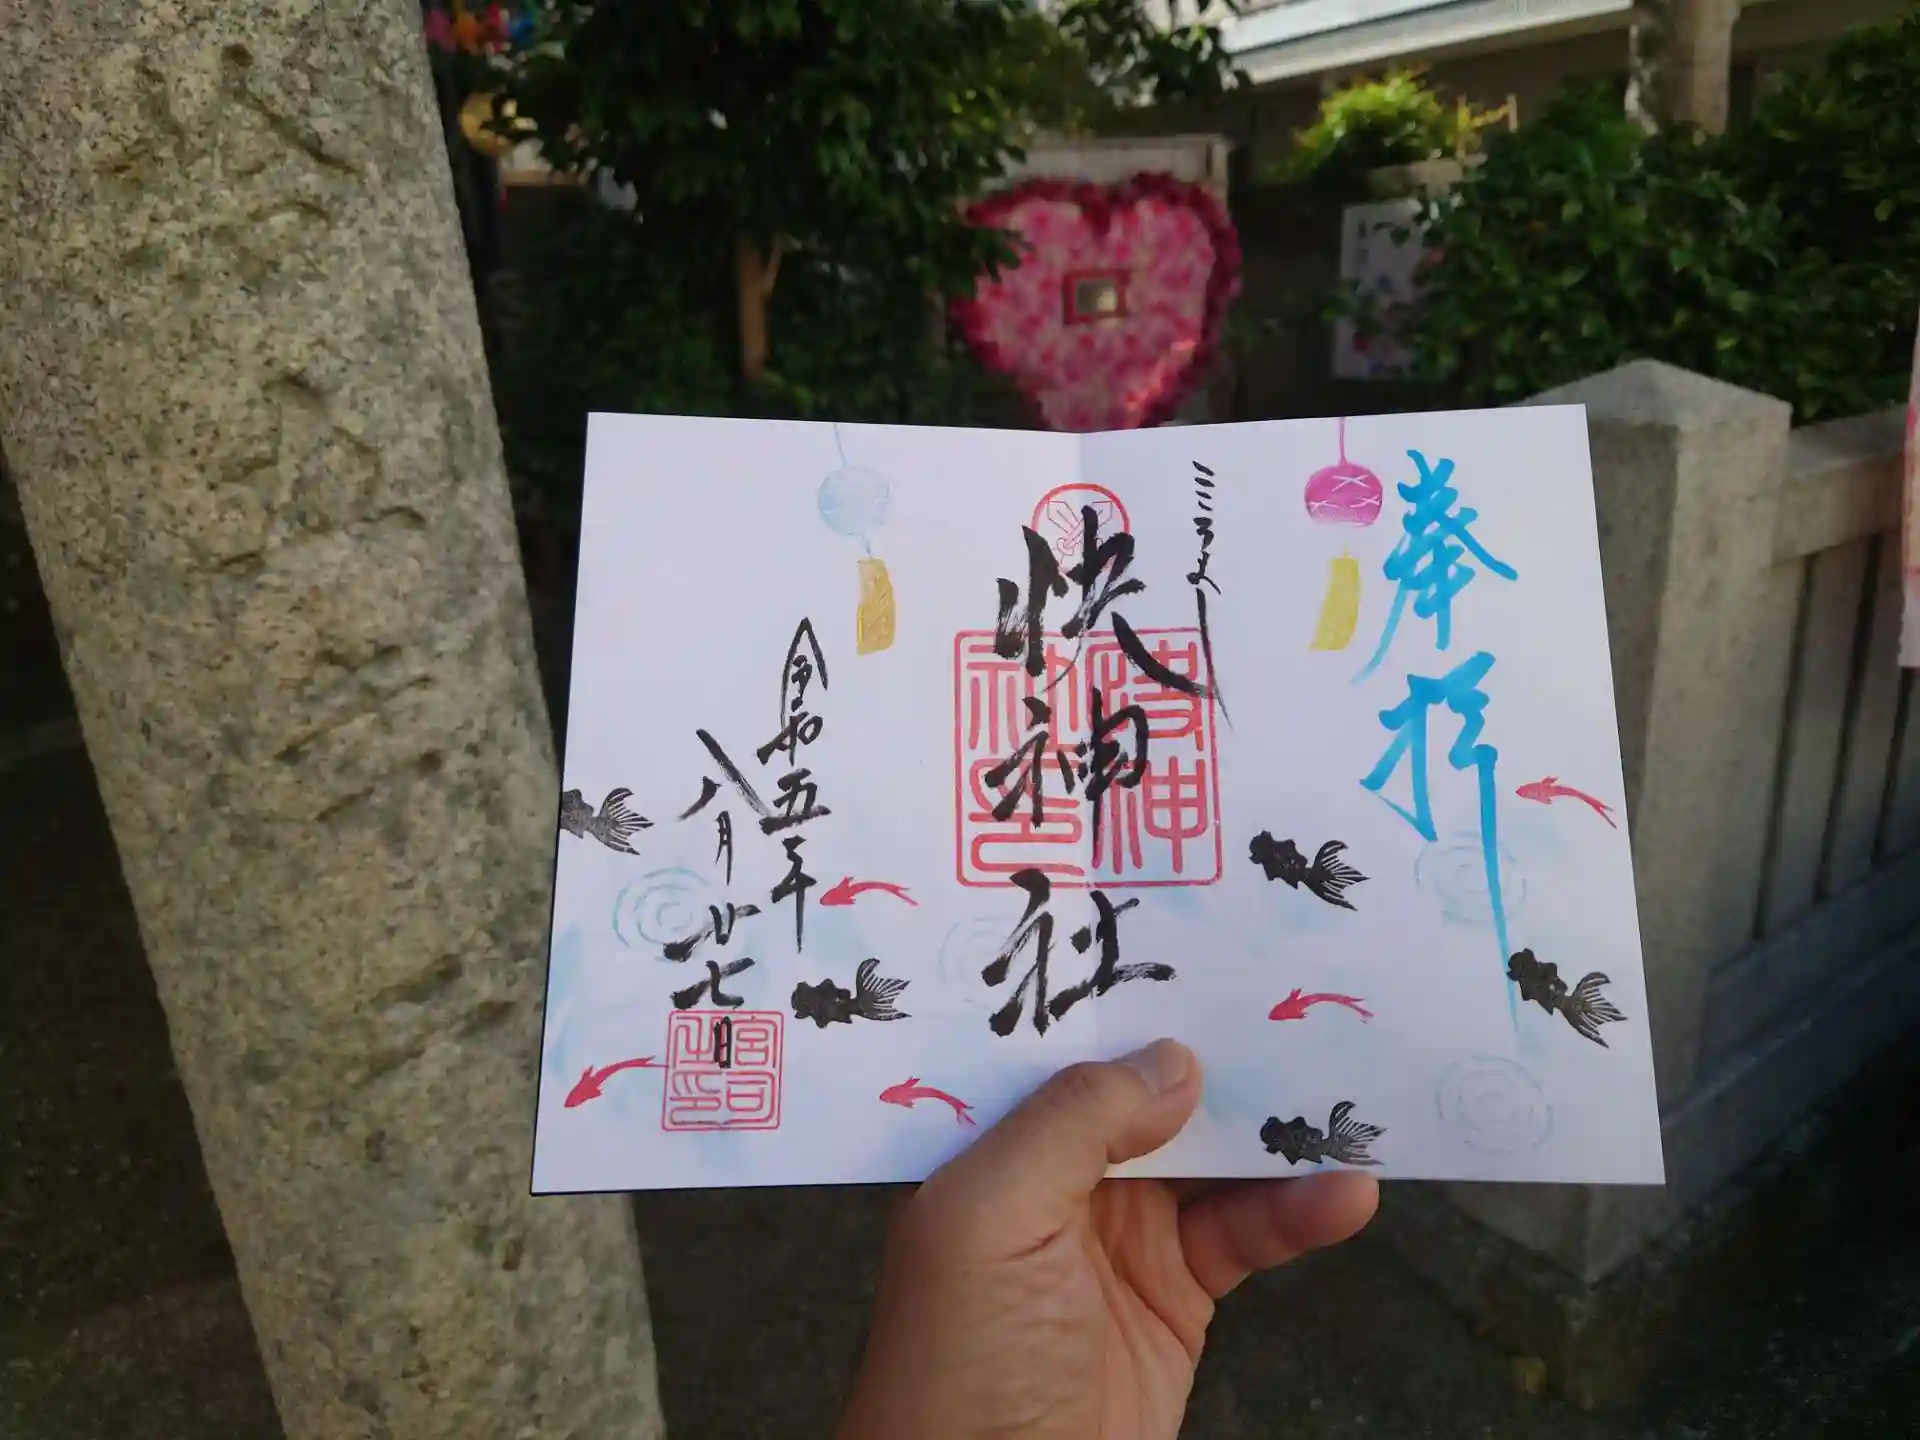 奉拝
こころよし
快神社
快神社印
令和五年
八月廿七日
宮司之印